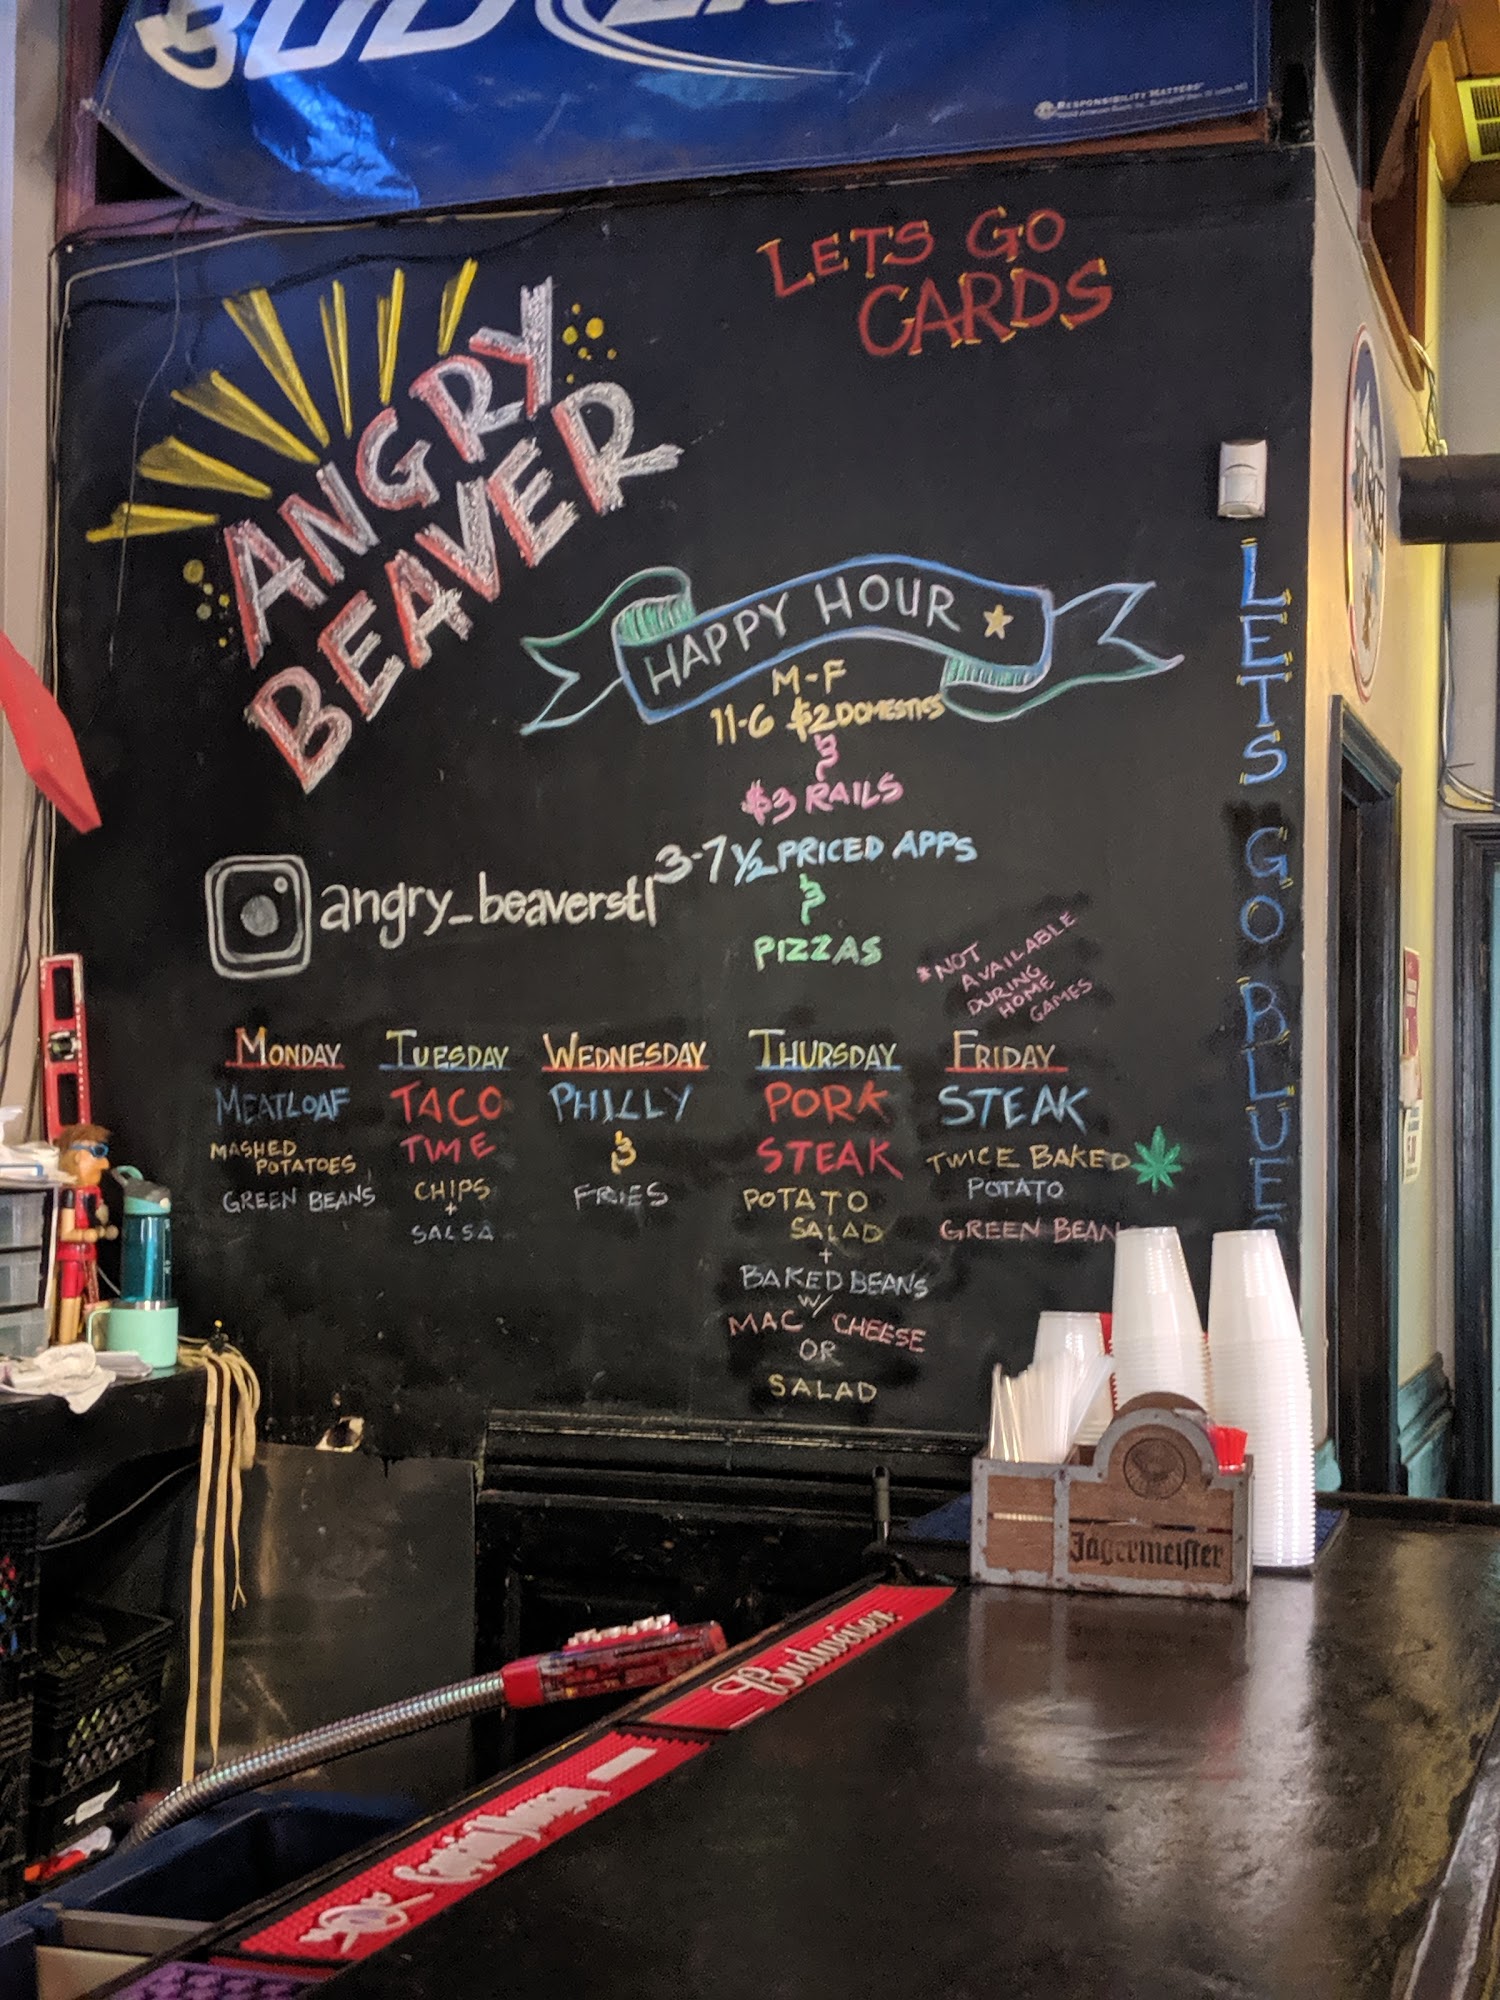 BUD LIGHT
RESPONSIBILITY MATTERS
LETS GO
CARDS
ANGRY
BEAVER
HAPPY HOUR
M-F
11-6 $2 DOMESTICS
&
$3 RAILS
3-7 ½ PRICED APPS
&
PIZZAS
*NOT
AVAILABLE
DURING
HOME
GAMES
angry_beaverstl
LETS GO BLUES
MONDAY
MEATLOAF
MASHED
POTATOES
GREEN BEANS
TUESDAY
TACO
TIME
CHIPS
+
SALSA
WEDNESDAY
PHILLY
&
FRIES
THURSDAY
PORK
STEAK
POTATO
SALAD
+
BAKED BEANS
W/
MAC CHEESE
OR
SALAD
FRIDAY
STEAK
TWICE BAKED
POTATO
GREEN BEAN
Jägermeister
Budweiser